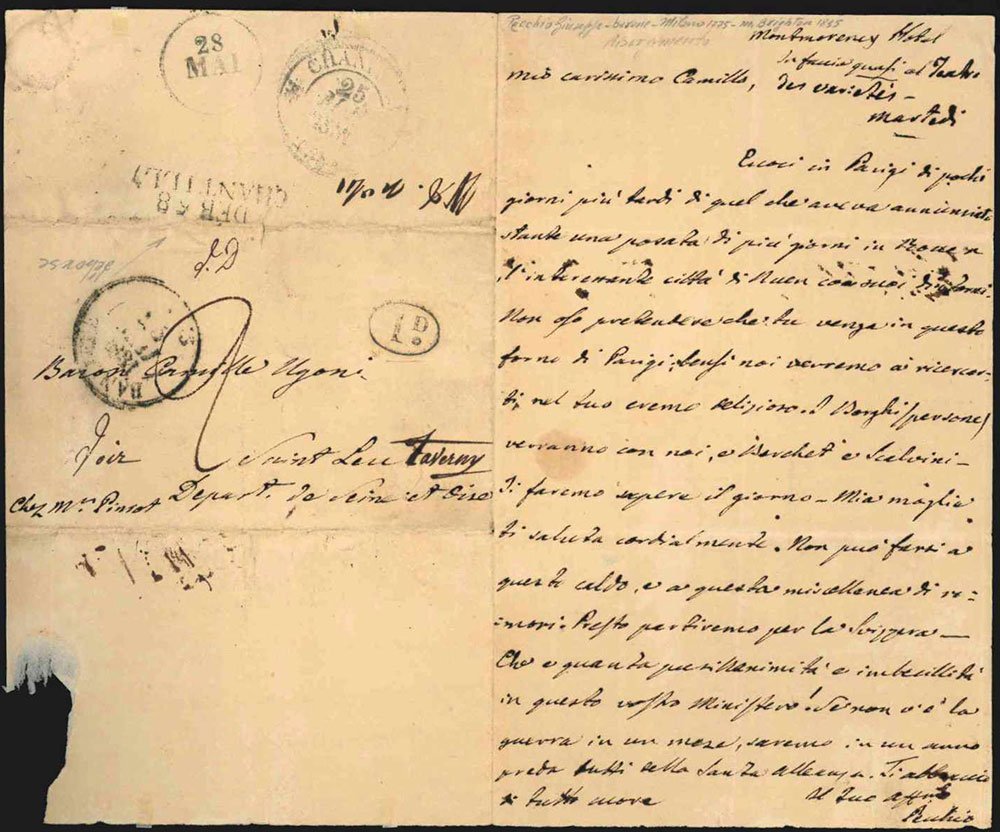 28
MAI
CHAN
25
DEB 58
CHANTILLY
debourse
1D
Baron Camille Ugoni
Saint Leu Taverny
Depart. de Seine et Oise
Chez Mr. Pinsot
Pecchio Giuseppe - barone - Milano 1785 - m. Brighton 1835
Montmorency Hotel
in faccia quasi al Teatro
mio carissimo Camillo,
des varietés -
martedì
Eccoci in Parigi di pochi
giorni più tardi di quel che aveva annunciato
stante una posata di più giorni in Rouen
l'interessante città di Ruen con suoi dintorni.
Non oso pretendere che tu venga in questo
forno di Parigi; bensì noi verremo a ricercar-
ti nel tuo eremo delizioso. I Borghi (persone)
verranno con noi, e Berchet e Scalvini -
Ti faremo sapere il giorno - Mia moglie
ti saluta cordialmente. Non può farsi a
questo caldo, e a questa miscellanea di ru-
mori. Presto partiremo per la Svizzera -
Che e quanta pusillanimità e imbecillità
in questo vostro Ministero! Se non v'è la
guerra in un mese, saremo in un anno
preda tutti della Santa alleanza. Ti abbraccio
di tutto cuore
Il tuo affmo
Pecchio